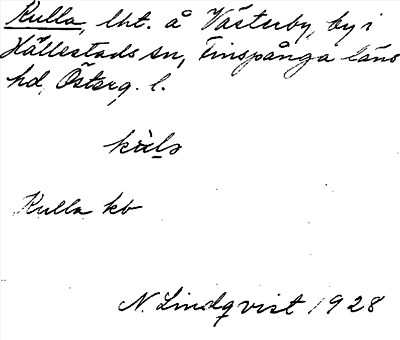 Kulla, lht. å Västerby, by i
Hällestads sn, Finspånga läns
hd, Österg. l.
Kulla kb
N. Lindqvist 1928